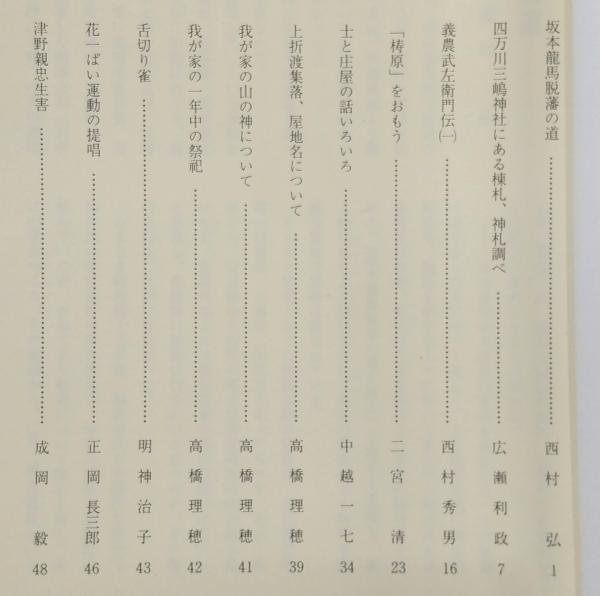 坂本龍馬脱藩の道……………………西村 弘 1
四万川三嶋神社にある棟札、神札調べ……………………広瀬利政 7
義農武左衛門伝㈠……………………西村秀男 16
「梼原」をおもう……………………二宮 清 23
士と庄屋の話いろいろ……………………中越一七 34
上折渡集落、屋地名について……………………高橋理穂 39
我が家の山の神について……………………高橋理穂 41
我が家の一年中の祭祀……………………高橋理穂 42
舌切り雀……………………明神治子 43
花一ぱい運動の提唱……………………正岡長三郎 46
津野親忠生害……………………成岡 毅 48